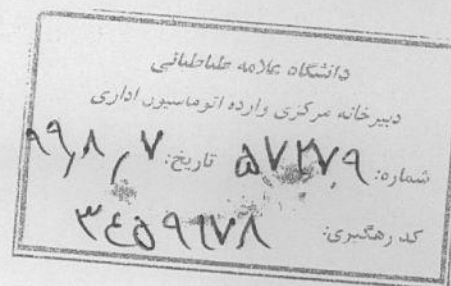 دانشگاه علامه طباطبائی
دبیرخانه مرکزی وارده اتوماسیون اداری
شماره: ۵۷۲۷۹ تاریخ: ۹۹٫۸٫۷
کد رهگیری: ۳۴۵۹۶۷۸